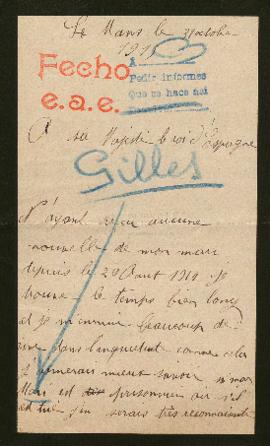 Le Mans le 31 octobre
191
Fecho
e.a.e.
A
Pedir informes
Que se hace así
A sa Majesté le roi d'Espagne
Gilles
N'ayant reçu aucune
nouvelle de mon mari
depuis le 20 Aout 1914 je
trouve le temps bien long
et je m'ennuie beaucoup de
dans l'inquietude comme cela
j'aimerais mieux savoir si mon
Mari est prisonnier ou s'il
est tué j'en serais très reconnaissante